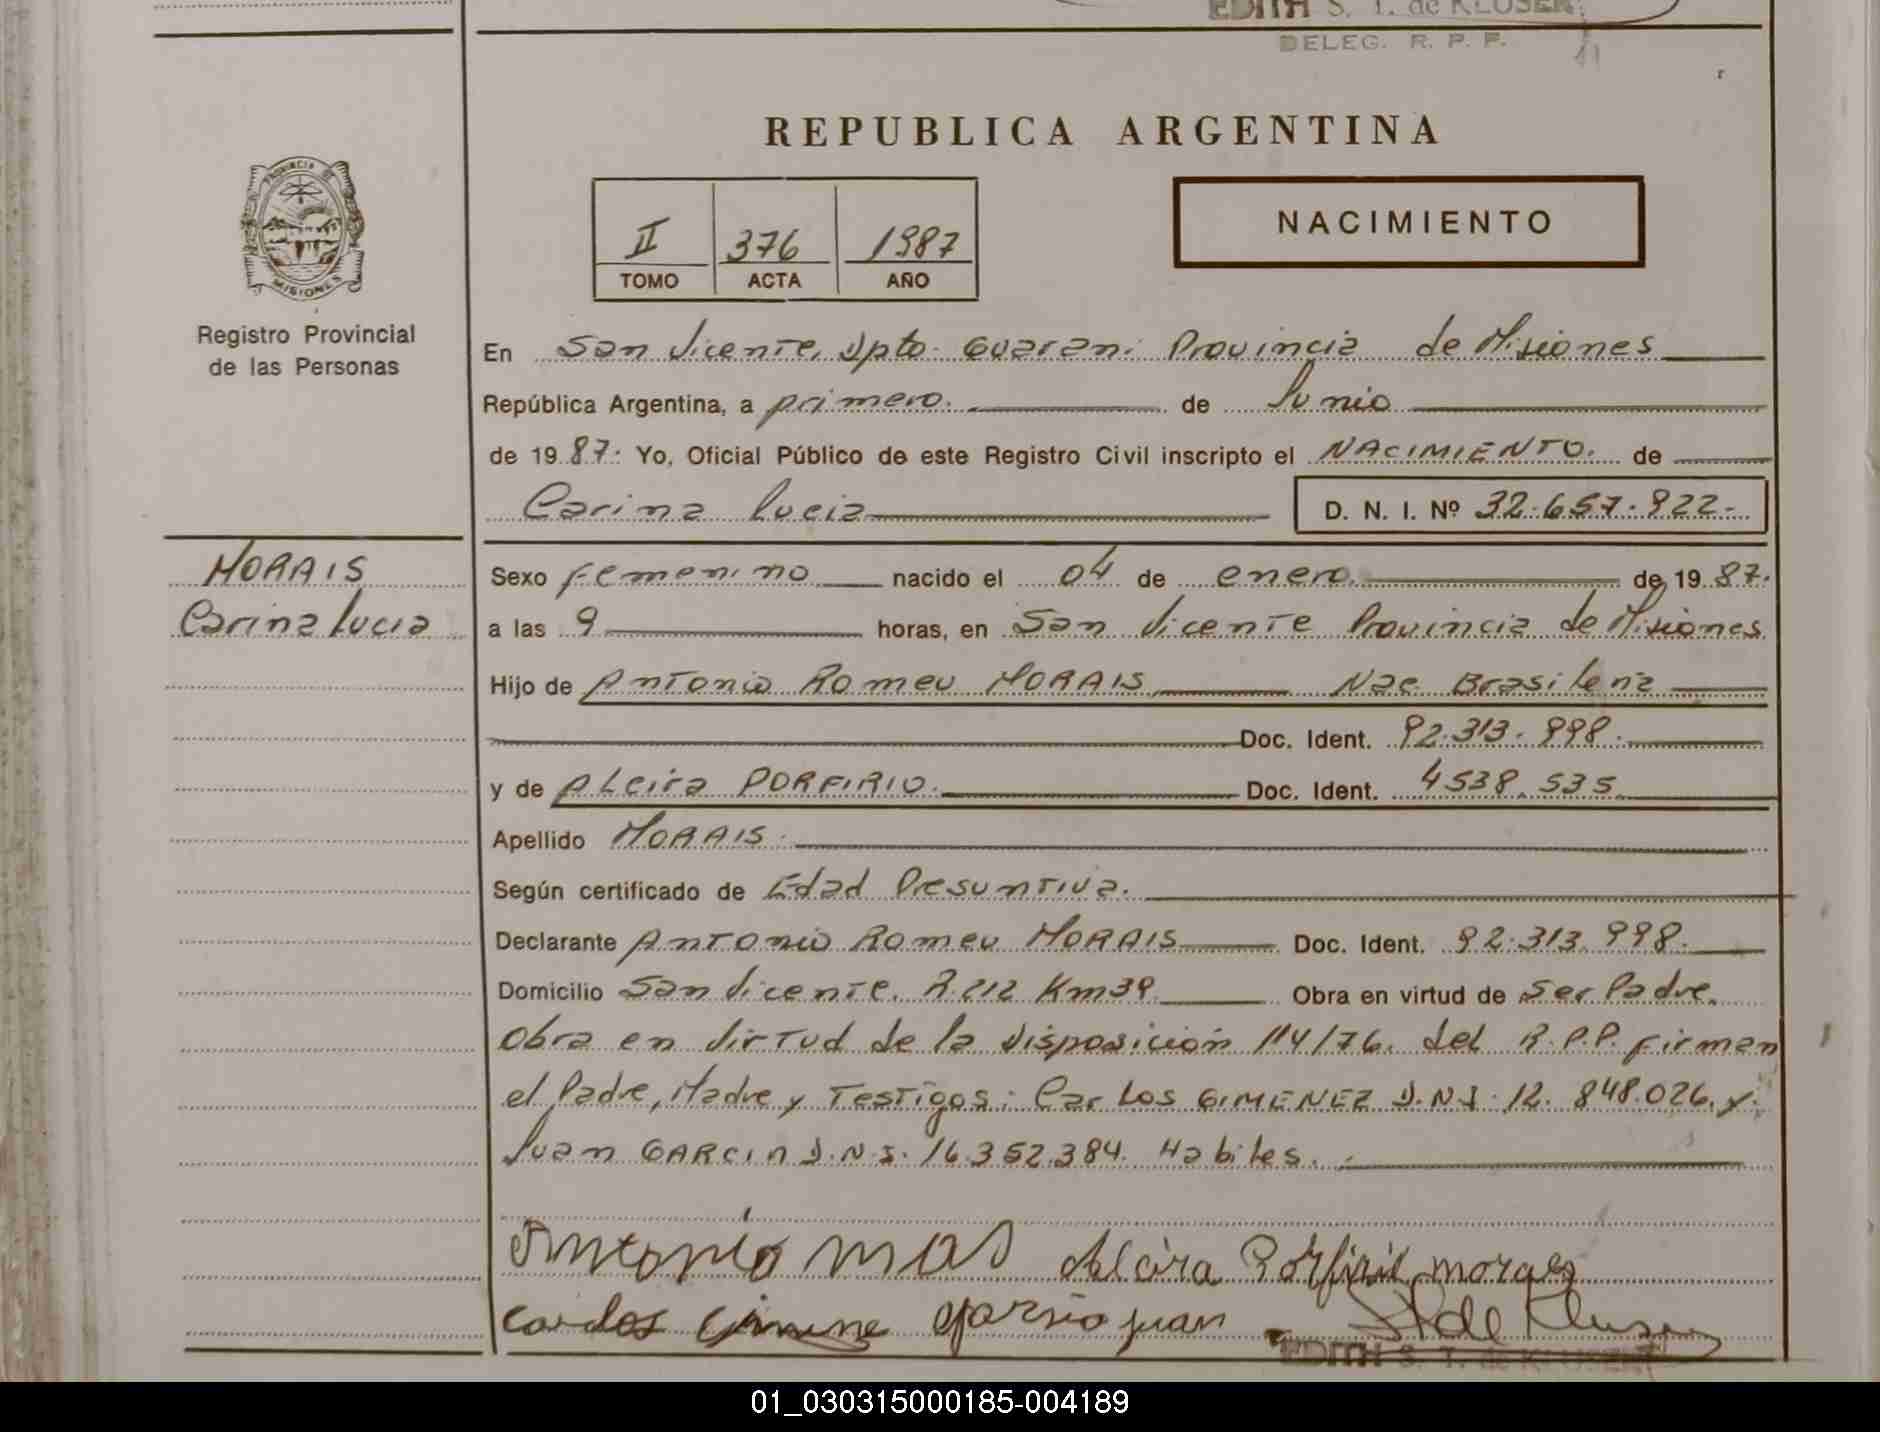 EDITH S. T. de KLUSEN
DELEG. R. P. P.
REPUBLICA ARGENTINA
PROVINCIA DE
MISIONES
Registro Provincial
de las Personas
II 376 1987
TOMO ACTA AÑO
NACIMIENTO
En San Vicente, Dpto. Guarani Provincia de Misiones
República Argentina, a primero. de Junio
de 1987. Yo, Oficial Público de este Registro Civil inscripto el NACIMIENTO. de
Carina Lucia D. N. I. Nº 32.657.922.
MORAIS
Carina Lucia
Sexo Femenino nacido el 04 de enero. de 1987.
a las 9 horas, en San Vicente Provincia de Misiones
Hijo de Antonio Romeu MORAIS Nac. Brasilena
Doc. Ident. 92.313.998.
y de ALcira PORFIRIO. Doc. Ident. 4538.535
Apellido MORAIS.
Según certificado de Edad Presuntiva.
Declarante Antonio Romeu MORAIS Doc. Ident. 92.313.998.
Domicilio San Vicente. R.212 Km39 Obra en virtud de Ser Padre.
Obra en Virtud de la Disposición 114/76. del R.P.P. firman
el Padre, Madre y Testigos: Carlos GIMENEZ D.N.I. 12.848.026. y
Juan GARCIA D.N.I. 16.352.384. Habiles.
Antonio Alcira Porfirio moraes
Carlos garsia juan
EDITH S. T. de KLUSEN
01_030315000185-004189